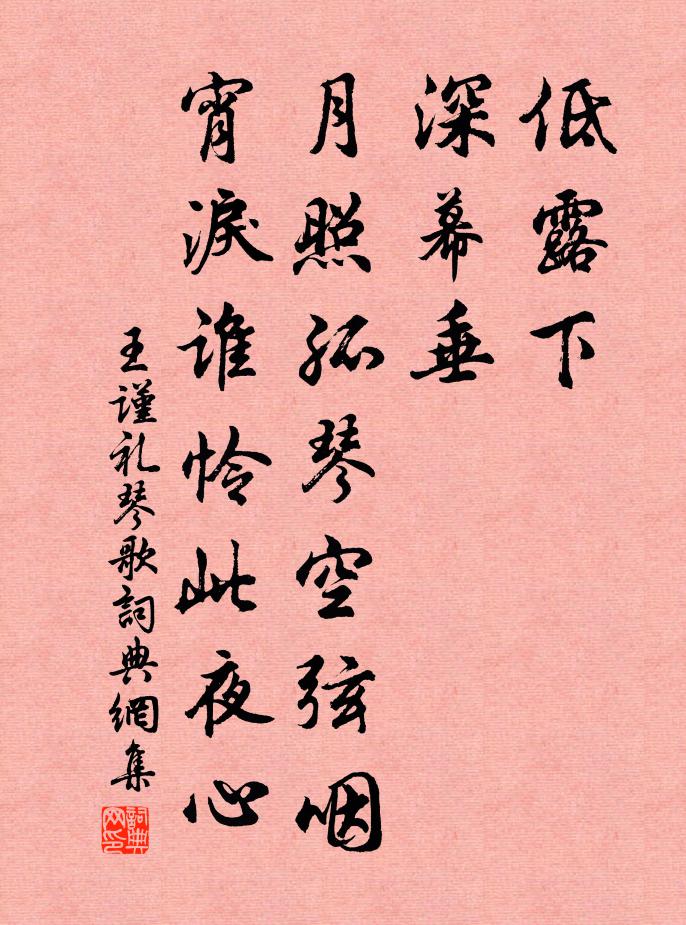 低露下
深幕垂
月照孤琴空弦咽
宵淚誰怜此夜心
王謹礼琴歌詞典網集
詞典网印